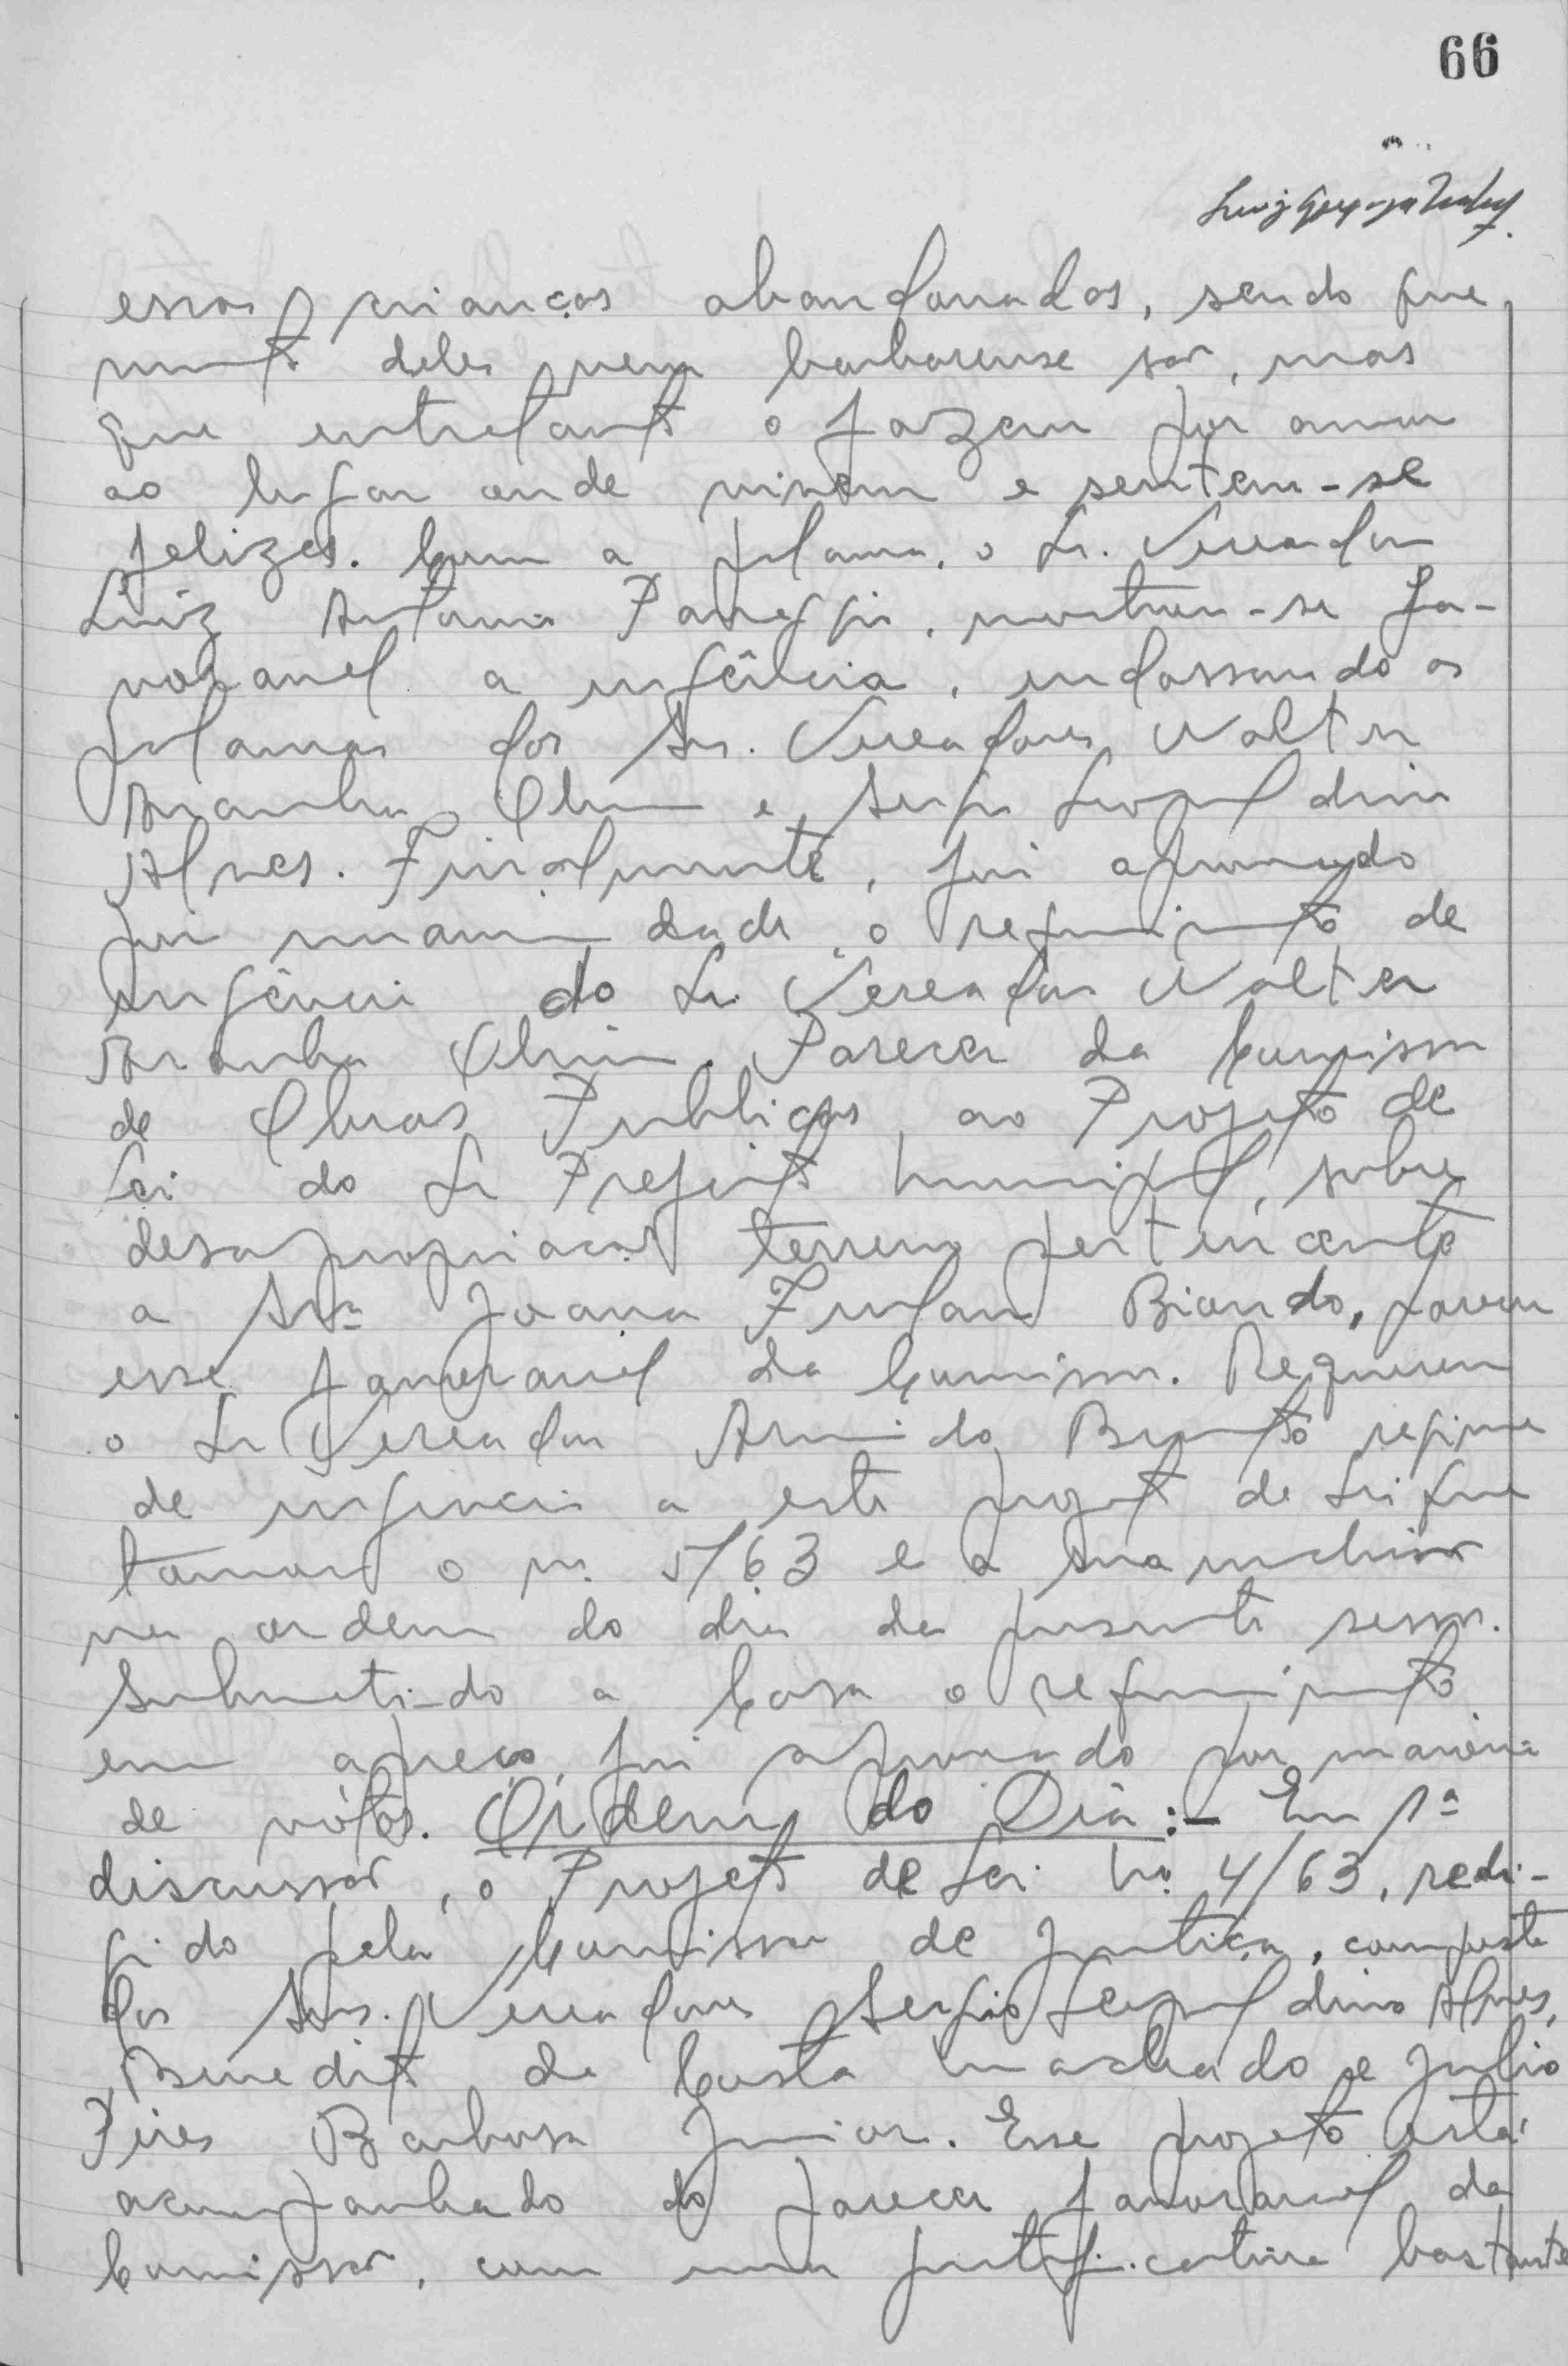 66
essas crianças abandonadas, sendo que
muitos deles nem barbarense são, mas
que entretanto o fazem por amor
ao lugar onde vivem e sentem-se
felizes. Com a palavra, o Sr. Vereador
Luiz Antonio Panaggio, mostrou-se fa-
voravel a urgência, endossando as
palavras dos Srs. Vereadores Walter
Aranha Olim e Sergio Leopoldino
Alves. Finalmente, foi aprovado
por unanimidade o requerimento de
urgência do Sr. Vereador Walter
Aranha Olim. Parecer da Comissão
de Obras Publicas, ao Projeto de
Lei do Sr Prefeito Municipal, sobre
desapropriacão terreno pertencente
a Sra Joana Furlan Biondo, parecer
esse favoravel da Comissão. Requereu
o Sr Vereador Armindo regime
de urgencia a este projeto de Lei que
tomou o n. 5/63 e a sua inclusão
na ordem do dia da presente sessão.
Submetido a Casa o requerimento
em apreço, foi aprovado por maioria
de vótos. Ordem do Dia:- Em 1ª
discussão, o Projeto de Lei No. 4/63, redi-
gido pela Comissão de Justiça, composta
dos Srs. Vereadores Sergio Leopoldino Alves,
Benedito da Costa Machado e Julio
Pires Barbosa Junior. Esse projeto está
acompanhado do parecer favoravel da
Comissão, com uma justificativa bastante